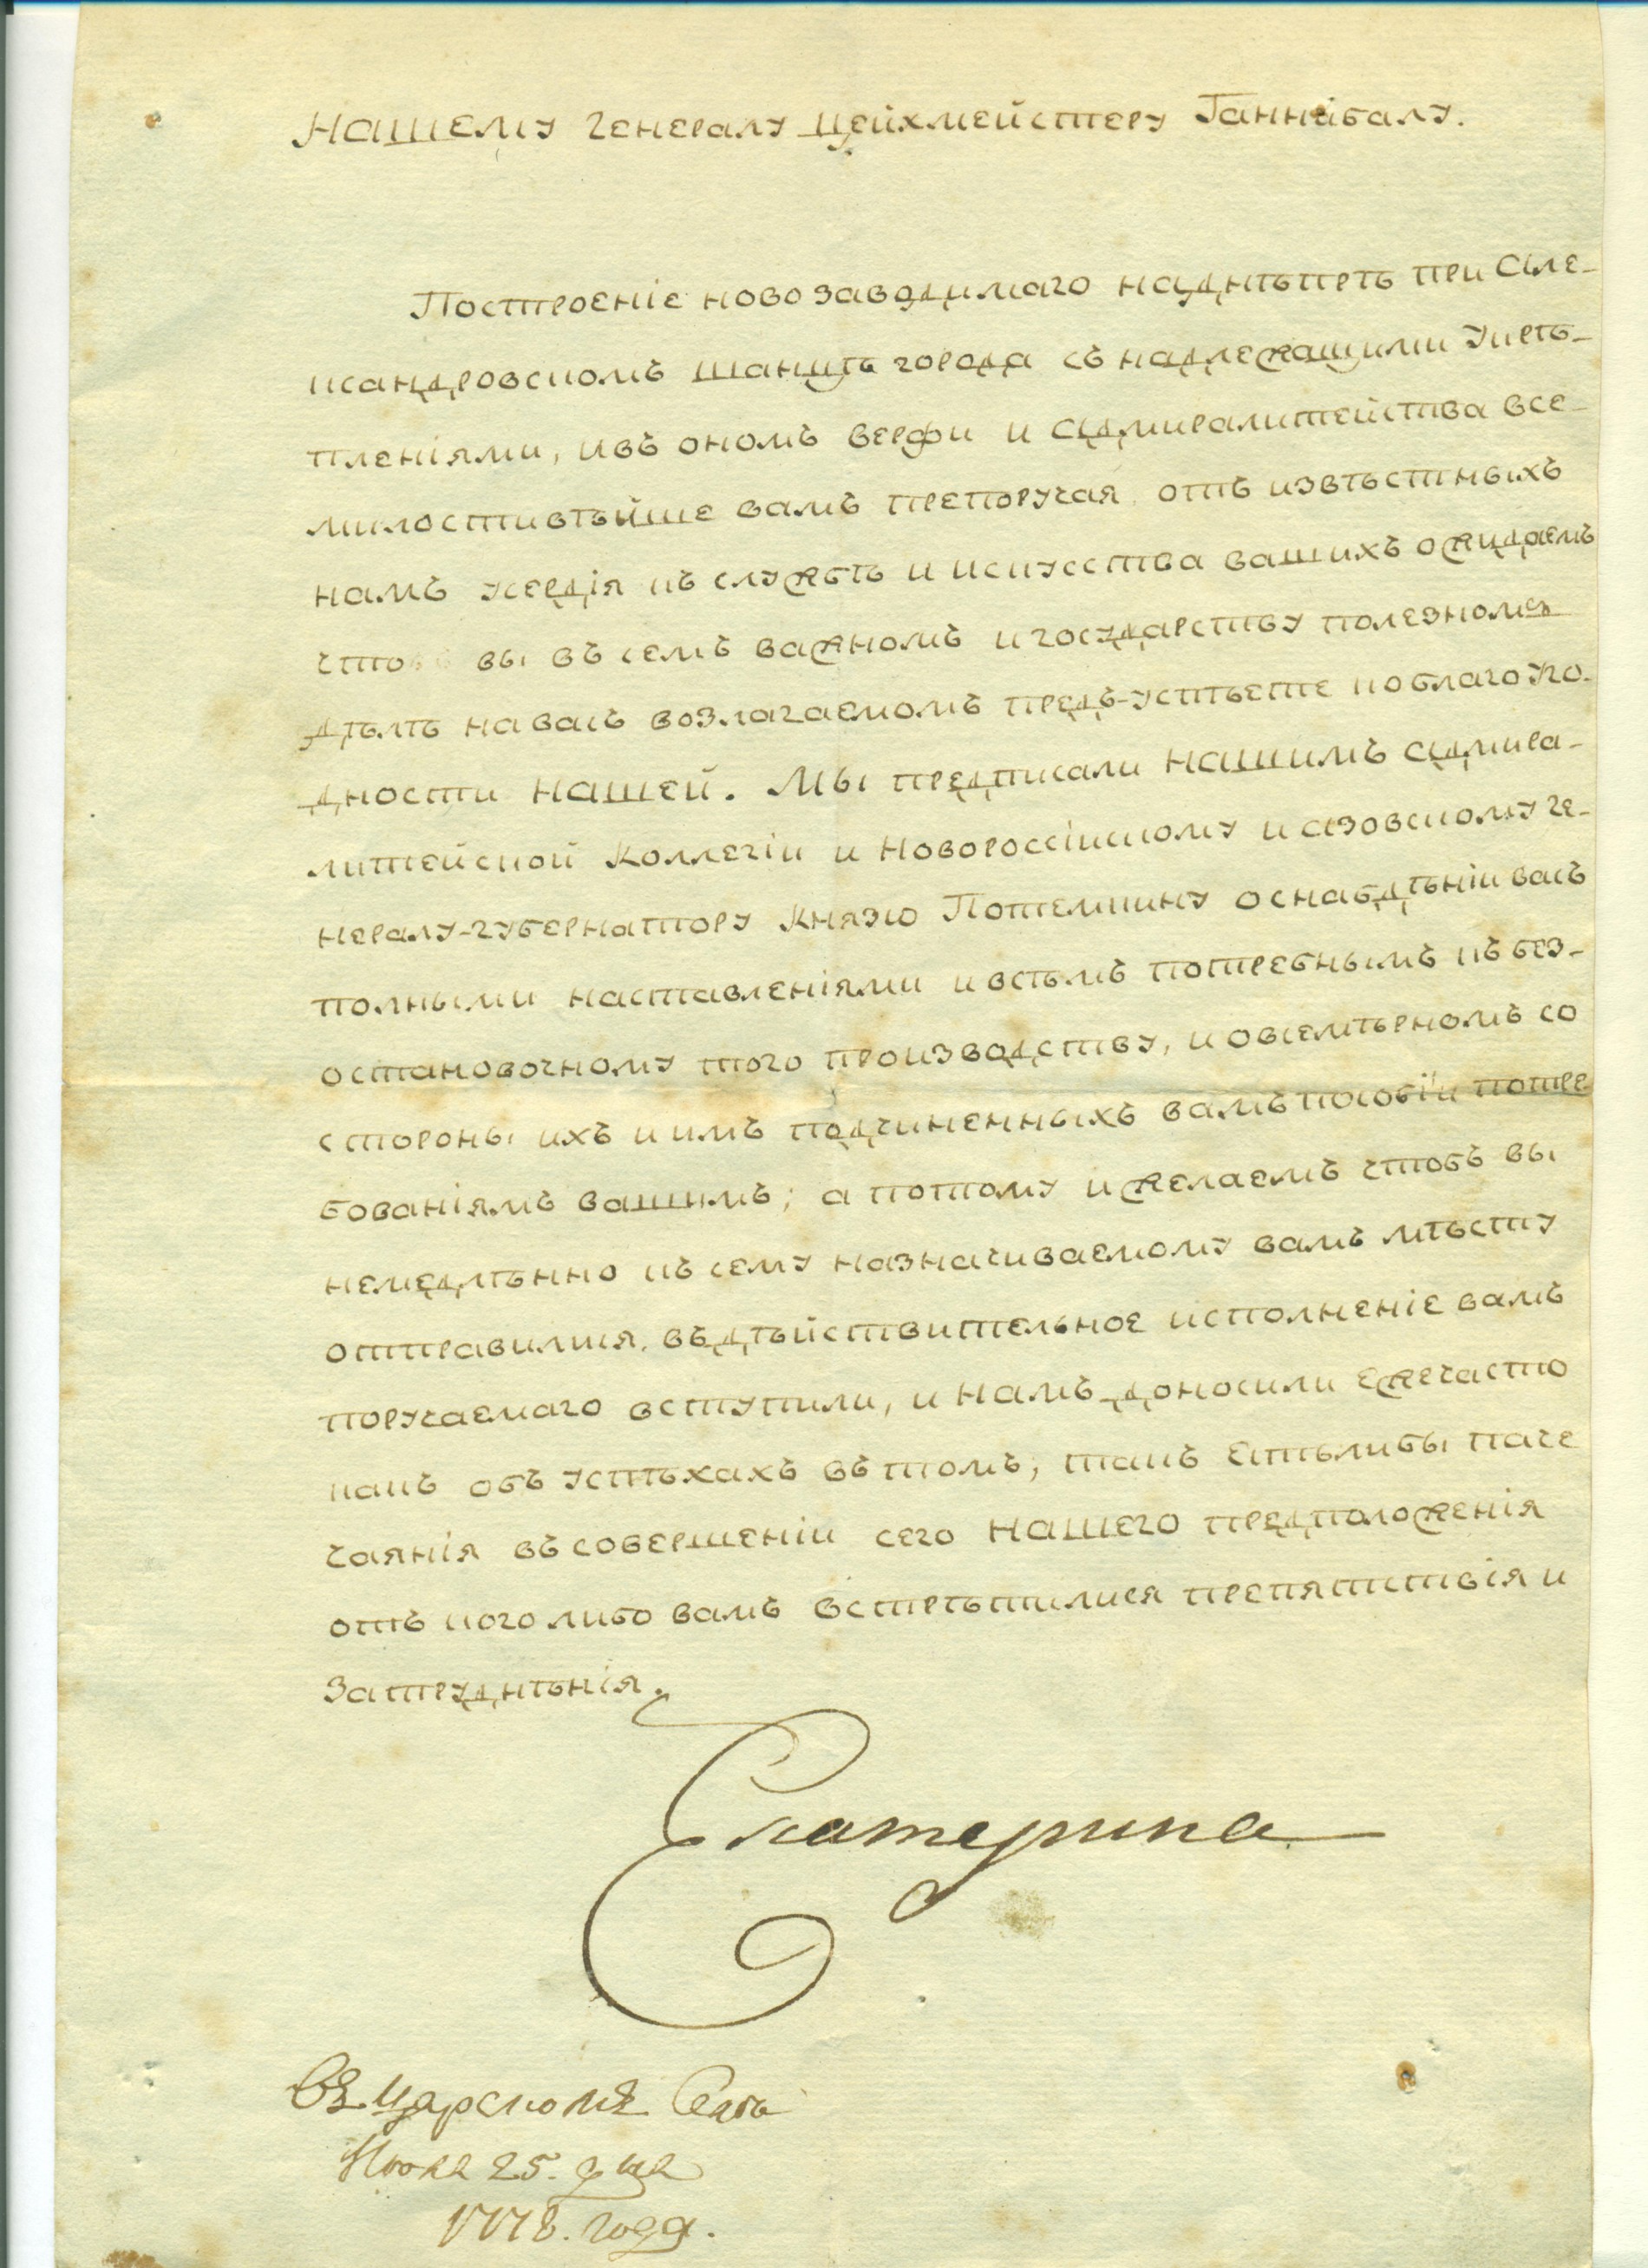 Нашему генералу цейхмейстеру Ганнибалу.
Построеніе новозаводимаго на Днѣпрѣ при Але-
ксандровскомъ шанцѣ города съ надлежащими укрѣ-
пленіями, и въ ономъ верфи и Адмиралитейства все-
милостивѣйше вамъ препоручая отъ извѣстныхъ
намъ усердія къ службѣ и искусства вашихъ ожидаемъ
что вы въ семъ важномъ и государству полезномъ
дѣлѣ на васъ возлагаемомъ предъ-успѣете по благоуго-
дности НАШЕЙ. Мы предписали НАШИМЪ Адмира-
литейской Коллегіи и Новороссійскому и Азовскому ге-
нералу-губернатору Князю Потемкину о снабдѣніи васъ
полными наставленіями и всѣмъ потребнымъ къ без-
остановочному того производству, и о всемѣрномъ со
стороны ихъ и имъ подчиненныхъ вамъ пособіи потре
бованіямъ вашимъ; а потому и желаемъ чтобъ вы
немедлѣнно къ сему назначиваемому вамъ мѣсту
отправился, въ дѣйствительное исполненіе вамъ
поручаемаго вступили, и НАМЪ доносили ежечасто
какъ объ успѣхахъ въ томъ, такъ естьлибы паче
чаянія въ совершеніи сего НАШЕГО предположенія
отъ кого либо вамъ встрѣтилися препятствія и
затруднѣнія.
Екатерина
Въ Царскомъ Селѣ
Июля 25. дня
1778. года.